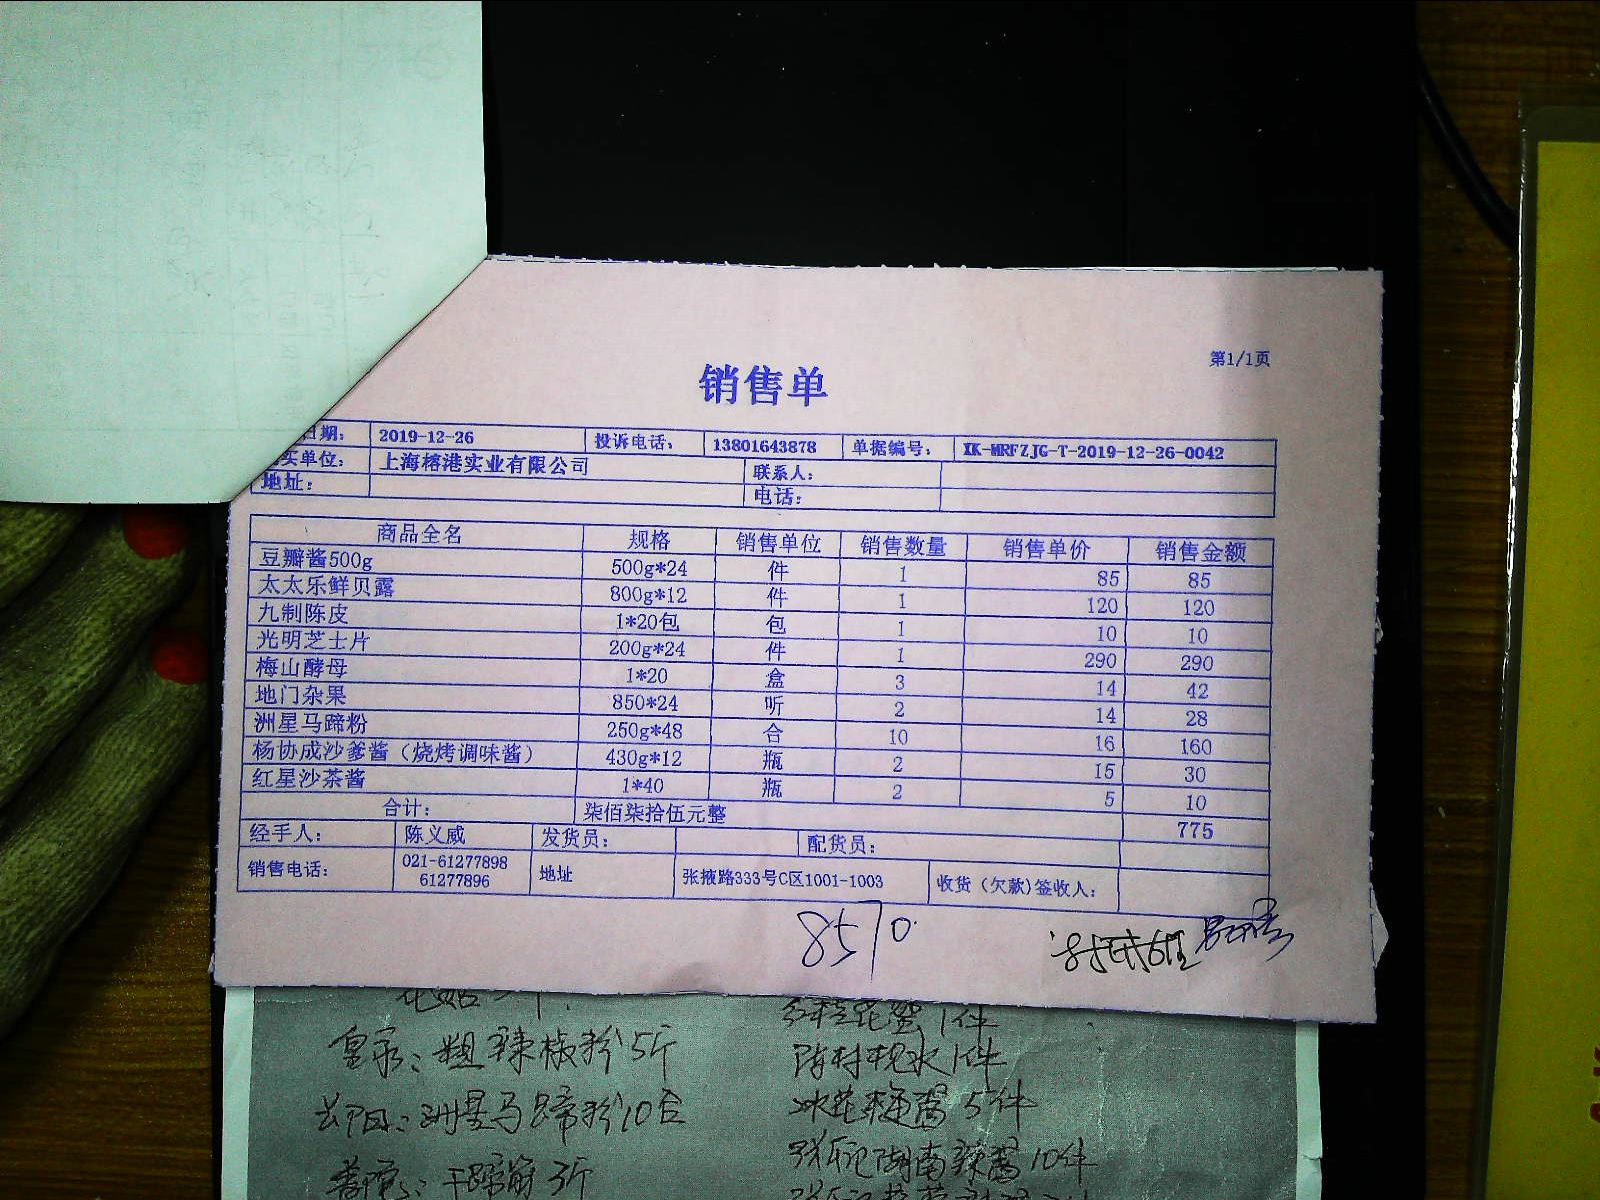 销售单
第1/1页
日期: 2019-12-26 投诉电话: 13801643878 单据编号: XK-MRFZJG-T-2019-12-26-0042
买单位: 上海榕港实业有限公司 联系人:
地址: 电话:
商品全名 规格 销售单位 销售数量 销售单价 销售金额
豆瓣酱500g 500g*24 件 1 85 85
太太乐鲜贝露 800g*12 件 1 120 120
九制陈皮 1*20包 包 1 10 10
光明芝士片 200g*24 件 1 290 290
梅山酵母 1*20 盒 3 14 42
地门杂果 850*24 听 2 14 28
洲星马蹄粉 250g*48 合 10 16 160
杨协成沙爹酱（烧烤调味酱） 430g*12 瓶 2 15 30
红星沙茶酱 1*40 瓶 2 5 10
合计: 柒佰柒拾伍元整 775
经手人: 陈义威 发货员: 配货员:
销售电话: 021-61277898 61277896 地址 张掖路333号C区1001-1003 收货（欠款)签收人:
8570
1件
粗辣椒粉5斤
1件
洲星马蹄粉10合
5件
3斤
湖南辣酱10件